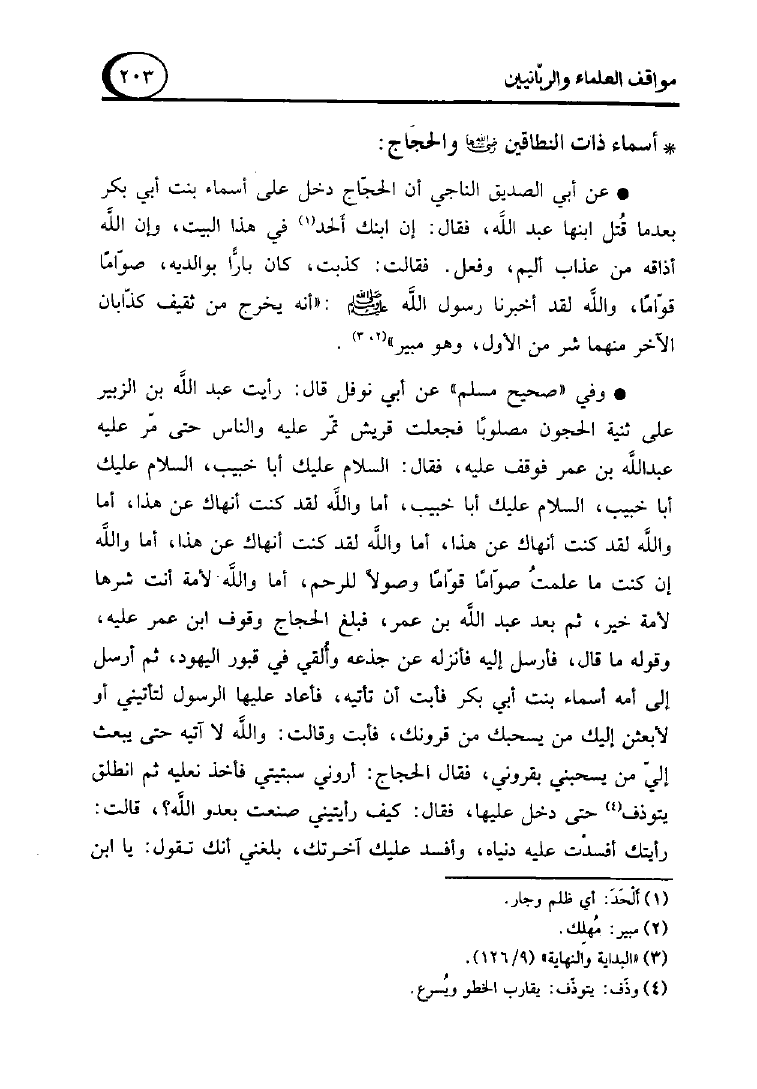 مواقف العلماء والربّانيين
٢٠٣
* أسماء ذات النطاقين رضي الله عنها والحجّاج:
● عن أبي الصديق الناجي أن الحجّاج دخل على أسماء بنت أبي بكر
بعدما قُتل ابنها عبد اللَّه، فقال: إن ابنك ألحد(١) في هذا البيت، وإن اللَّه
أذاقه من عذاب أليم، وفعل. فقالت: كذبت، كان بارًّا بوالديه، صوّامًا
قوّامًا، واللَّه لقد أخبرنا رسول اللَّه ﷺ: «أنه يخرج من ثقيف كذّابان
الآخر منهما شر من الأول، وهو مبير»(٢، ٣) .
● وفي «صحيح مسلم» عن أبي نوفل قال: رأيت عبد اللَّه بن الزبير
على ثنية الحجون مصلوبًا فجعلت قريش تمّر عليه والناس حتى مّر عليه
عبداللَّه بن عمر فوقف عليه، فقال: السلام عليك أبا خبيب، السلام عليك
أبا خبيب، السلام عليك أبا خبيب، أما واللَّه لقد كنت أنهاك عن هذا، أما
واللَّه لقد كنت أنهاك عن هذا، أما واللَّه لقد كنت أنهاك عن هذا، أما واللَّه
إن كنت ما علمتُ صوّامًا قوّامًا وصولاً للرحم، أما واللَّه لأمة أنت شرها
لأمة خير، ثم بعد عبد اللَّه بن عمر، فبلغ الحجاج وقوف ابن عمر عليه،
وقوله ما قال، فأرسل إليه فأنزله عن جذعه وأُلقي في قبور اليهود، ثم أرسل
إلى أمه أسماء بنت أبي بكر فأبت أن تأتيه، فأعاد عليها الرسول لتأتيني أو
لأبعثن إليك من يسحبك من قرونك، فأبت وقالت: واللَّه لا آتيه حتى يبعث
إليّ من يسحبني بقروني، فقال الحجاج: أروني سبتيتي فأخذ نعليه ثم انطلق
يتوذف(٤) حتى دخل عليها، فقال: كيف رأيتيني صنعت بعدو اللَّه؟، قالت:
رأيتك أفسدْت عليه دنياه، وأفسد عليك آخرتك، بلغني أنك تقول: يا ابن
(١) ألْحَدَ: أي ظلم وجار.
(٢) مبير: مُهلِك.
(٣) «البداية والنهاية» (٩/ ١٢٦).
(٤) وذَف: يتوذّف: يقارب الخطو ويُسرع.